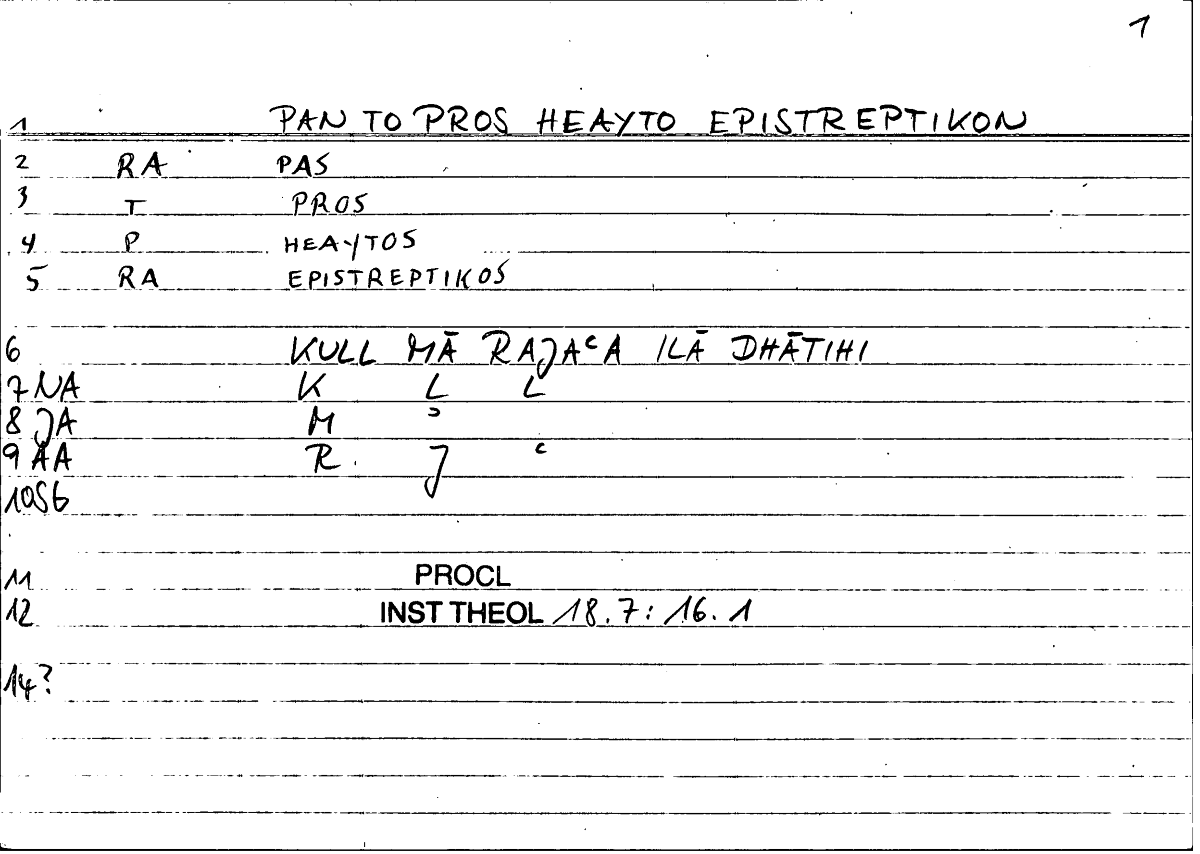 1
1 PAN TO PROS HEAYTO EPISTREPTIKON
2 RA PAS
3 T PROS
4 P HEAYTOS
5 RA EPISTREPTIKOS
6 KULL MĀ RAJAᶜA ILĀ DHĀTIHI
7 NA K L L
8 JA M ᵓ
9 AA R J ᶜ
10 S6
11 PROCL
12 INST THEOL 18.7: 16.1
14?